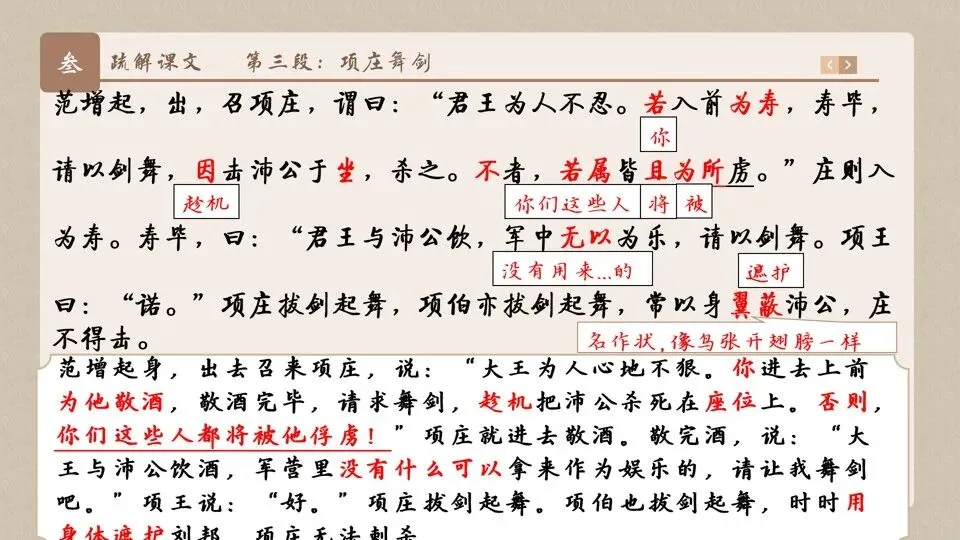 叁 疏解课文 第三段：项庄舞剑
范增起，出，召项庄，谓曰：“君王为人不忍。若入前为寿，寿毕，
你
请以剑舞，因击沛公于坐，杀之。不者，若属皆且为所虏。”庄则入
趁机 你们这些人 将 被
为寿。寿毕，曰：“君王与沛公饮，军中无以为乐，请以剑舞。项王
没有用来...的 遮护
曰：“诺。”项庄拔剑起舞，项伯亦拔剑起舞，常以身翼蔽沛公，庄
不得击。
名作状,像鸟张开翅膀一样
范增起身，出去召来项庄，说：“大王为人心地不狠。你进去上前
为他敬酒，敬酒完毕，请求舞剑，趁机把沛公杀死在座位上。否则，
你们这些人都将被他俘虏！”项庄就进去敬酒。敬完酒，说：“大
王与沛公饮酒，军营里没有什么可以拿来作为娱乐的，请让我舞剑
吧。”项王说：“好。”项庄拔剑起舞。项伯也拔剑起舞，时时用
身体遮护刘邦，项庄无法刺杀